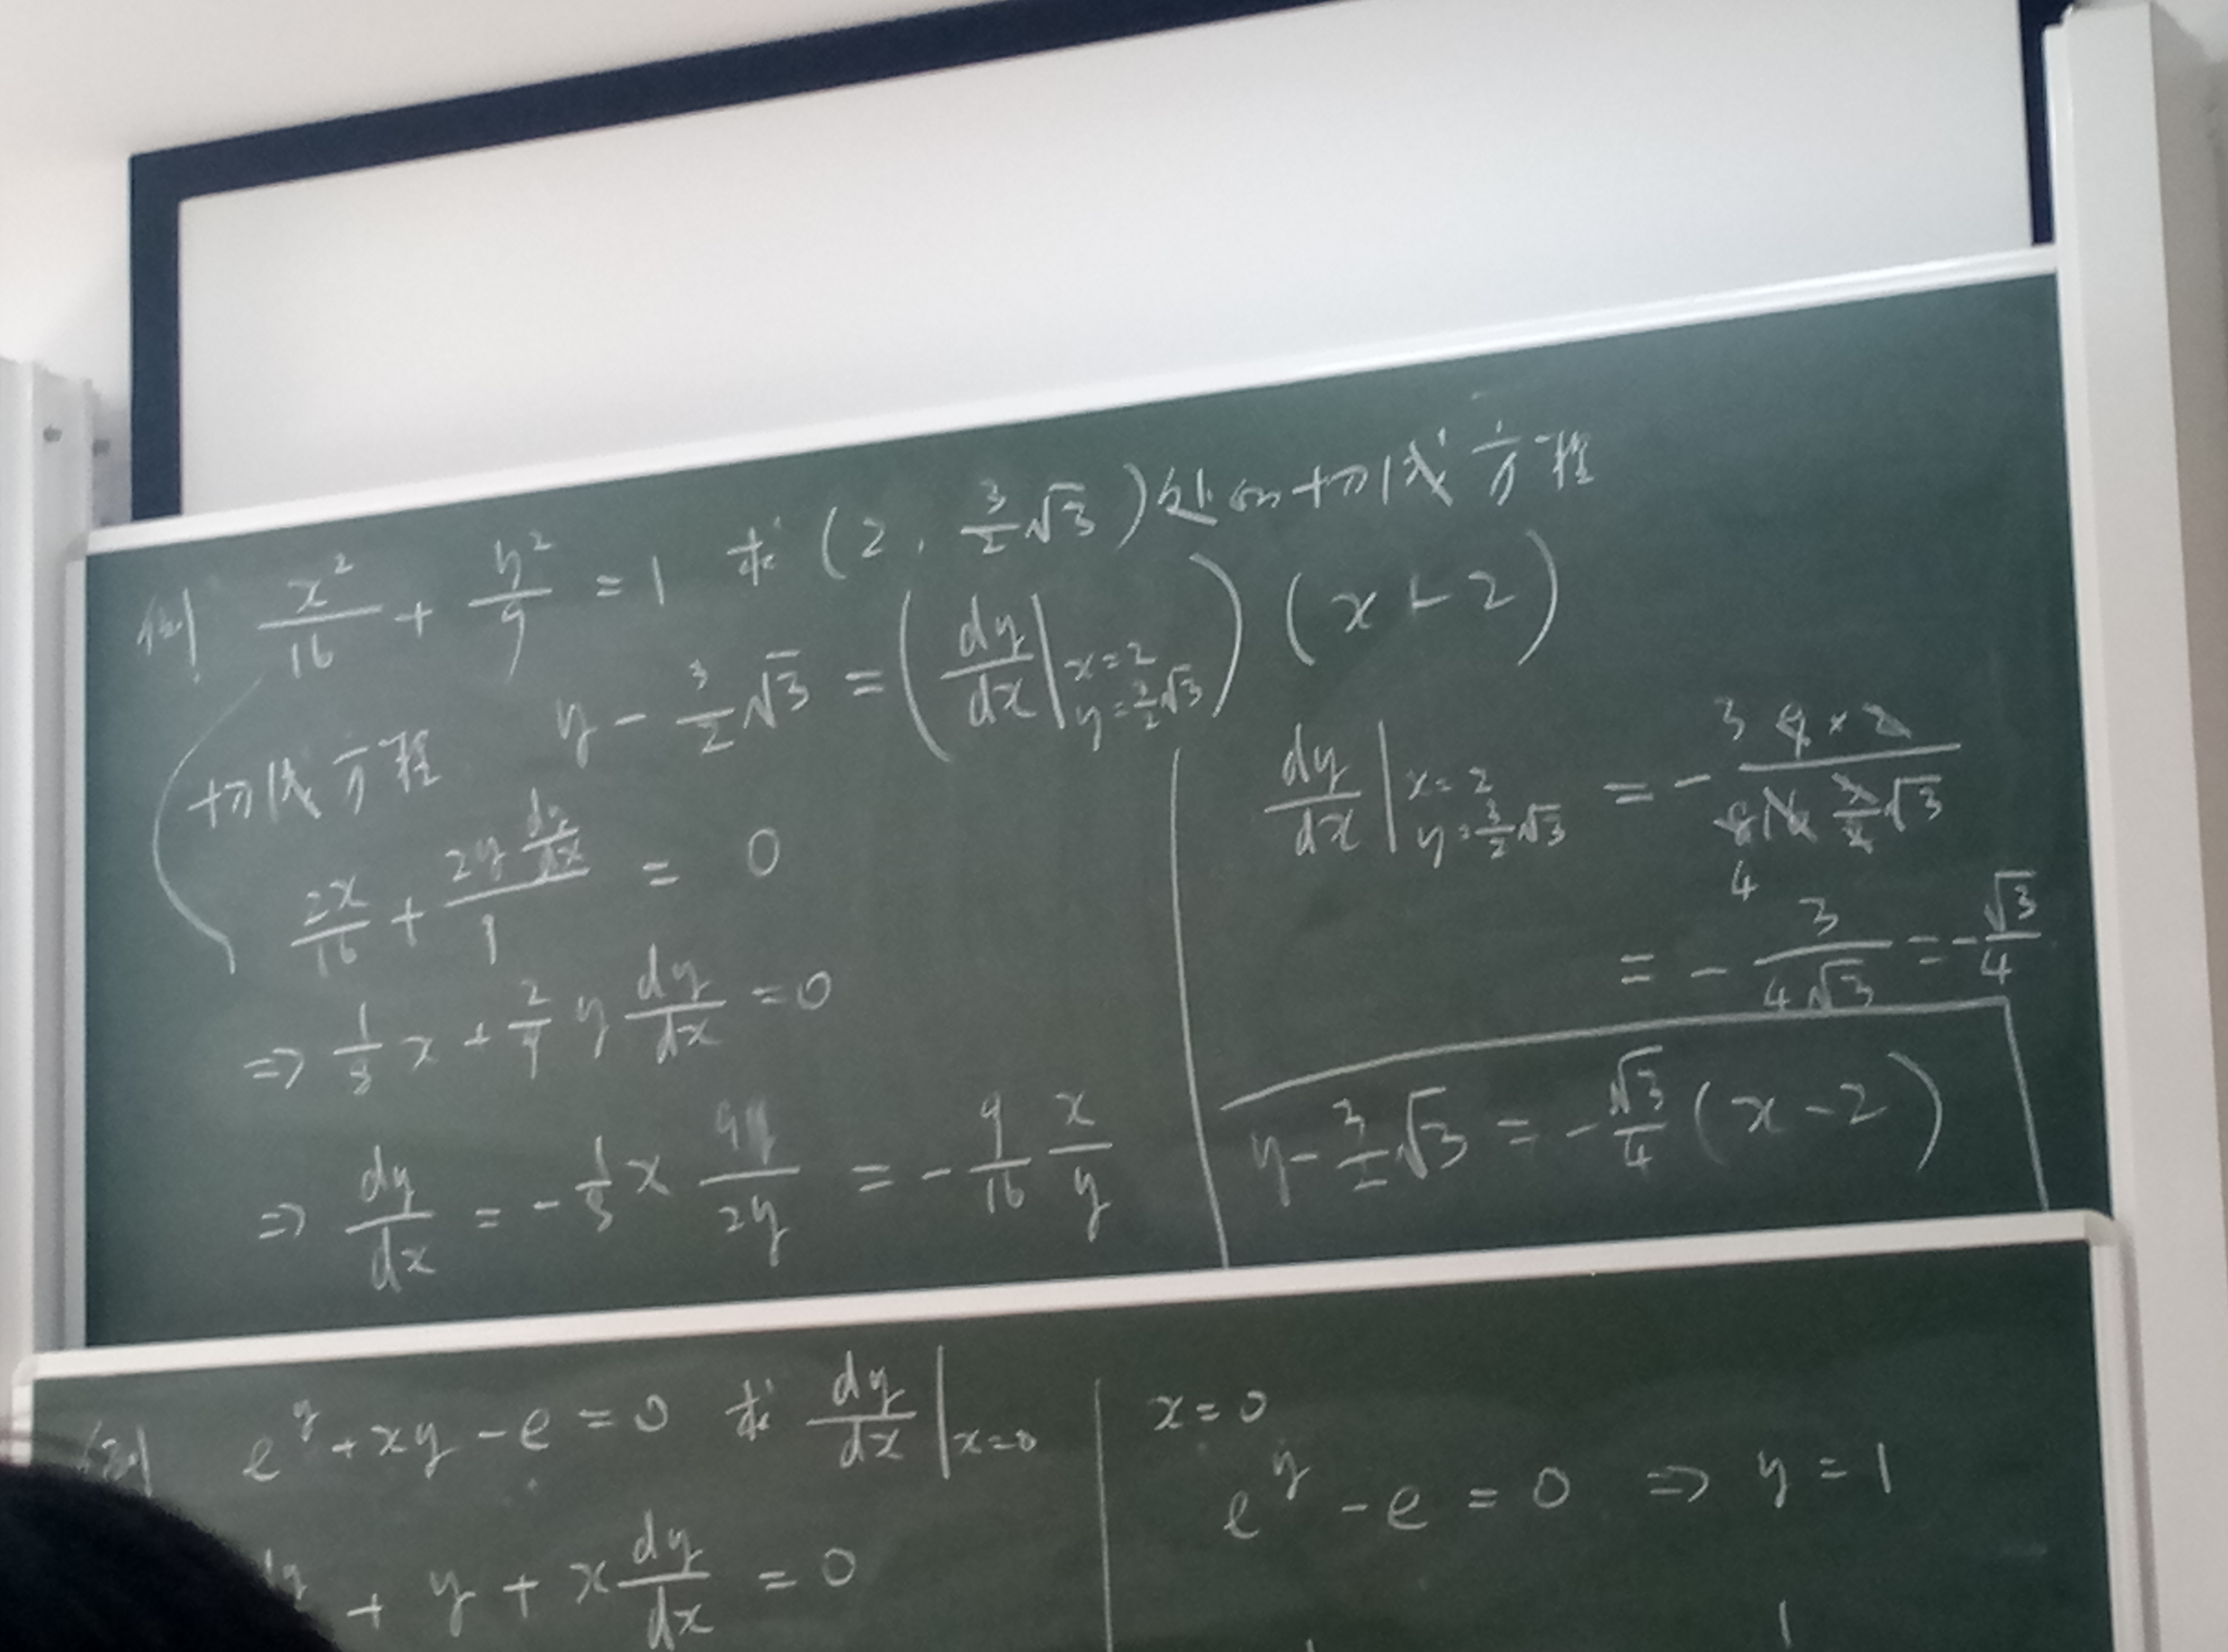 例 x²/16 + y²/9 = 1 求 (2, 3/2 √3) 处的切线方程
切线方程 y - 3/2 √3 = (dy/dx |x=2 y=3/2 √3) (x - 2)
2x/16 + 2y dy/dx / 9 = 0
⇒ 1/8 x + 2/9 y dy/dx = 0
⇒ dy/dx = - 1/8 x 9/2y = - 9/16 x/y
dy/dx |x=2 y=3/2 √3 = - 9×2 / 16 3/2 √3
= - 3/4√3 = - √3/4
y - 3/2 √3 = - √3/4 (x - 2)
例 e^y + xy - e = 0 求 dy/dx |x=0
+ y + x dy/dx = 0
x = 0
e^y - e = 0 ⇒ y = 1